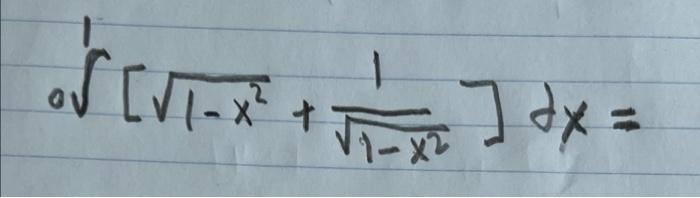 ₀∫¹ [√(1-x²) + 1/√(1-x²)] dx =